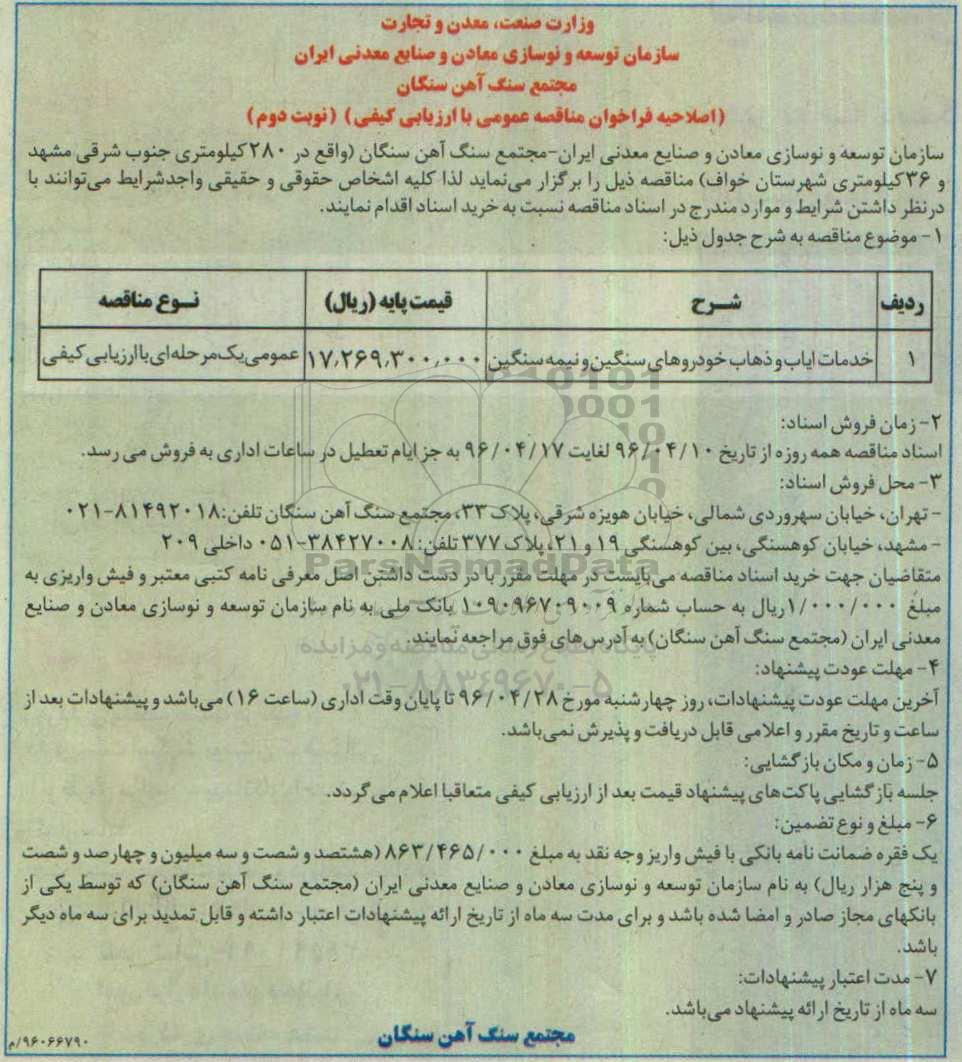 وزارت صنعت، معدن و تجارت
سازمان توسعه و نوسازی معادن و صنایع معدنی ایران
مجتمع سنگ آهن سنگان
(اصلاحیه فراخوان مناقصه عمومی با ارزیابی کیفی) (نوبت دوم)
سازمان توسعه و نوسازی معادن و صنایع معدنی ایران-مجتمع سنگ آهن سنگان (واقع در ۲۸۰ کیلومتری جنوب شرقی مشهد
و ۳۶ کیلومتری شهرستان خواف) مناقصه ذیل را برگزار می‌نماید لذا کلیه اشخاص حقوقی و حقیقی واجدشرایط می‌توانند با
درنظر داشتن شرایط و موارد مندرج در اسناد مناقصه نسبت به خرید اسناد اقدام نمایند.
۱- موضوع مناقصه به شرح جدول ذیل:
ردیف شـــرح قیمت پایه (ریال) نـــوع مناقصه
۱ خدمات ایاب و ذهاب خودروهای سنگین و نیمه سنگین ۱۷,۲۶۹,۳۰۰,۰۰۰ عمومی یک مرحله‌ای با ارزیابی کیفی
۲- زمان فروش اسناد:
اسناد مناقصه همه روزه از تاریخ ۹۶/۰۴/۱۰ لغایت ۹۶/۰۴/۱۷ به جز ایام تعطیل در ساعات اداری به فروش می رسد.
۳- محل فروش اسناد:
- تهران، خیابان سهروردی شمالی، خیابان هویزه شرقی، پلاک ۳۳، مجتمع سنگ آهن سنگان تلفن: ۸۱۴۹۲۰۱۸-۰۲۱
- مشهد، خیابان کوهسنگی، بین کوهسنگی ۱۹ و ۲۱، پلاک ۳۷۷ تلفن: ۳۸۴۲۷۰۰۸-۰۵۱ داخلی ۲۰۹
متقاضیان جهت خرید اسناد مناقصه می‌بایست در مهلت مقرر با در دست داشتن اصل معرفی نامه کتبی معتبر و فیش واریزی به
مبلغ ۱/۰۰۰/۰۰۰ ریال به حساب شماره ۱۰۹۰۹۶۷۰۹۰۰۹ بانک ملی به نام سازمان توسعه و نوسازی معادن و صنایع
معدنی ایران (مجتمع سنگ آهن سنگان) به آدرس‌های فوق مراجعه نمایند.
۴- مهلت عودت پیشنهاد:
آخرین مهلت عودت پیشنهادات، روز چهارشنبه مورخ ۹۶/۰۴/۲۸ تا پایان وقت اداری (ساعت ۱۶) می‌باشد و پیشنهادات بعد از
ساعت و تاریخ مقرر و اعلامی قابل دریافت و پذیرش نمی‌باشد.
۵- زمان و مکان بازگشایی:
جلسه بازگشایی پاکت‌های پیشنهاد قیمت بعد از ارزیابی کیفی متعاقبا اعلام می‌گردد.
۶- مبلغ و نوع تضمین:
یک فقره ضمانت نامه بانکی یا فیش واریز وجه نقد به مبلغ ۸۶۳/۴۶۵/۰۰۰ (هشتصد و شصت و سه میلیون و چهارصد و شصت
و پنج هزار ریال) به نام سازمان توسعه و نوسازی معادن و صنایع معدنی ایران (مجتمع سنگ آهن سنگان) که توسط یکی از
بانکهای مجاز صادر و امضا شده باشد و برای مدت سه ماه از تاریخ ارائه پیشنهادات اعتبار داشته و قابل تمدید برای سه ماه دیگر
باشد.
۷- مدت اعتبار پیشنهادات:
سه ماه از تاریخ ارائه پیشنهاد می‌باشد.
مجتمع سنگ آهن سنگان
۹۶۰۶۶۷۹۰/م
ParsNamadData
پایگاه اطلاع رسانی مناقصه و مزایده
۰۲۱-۸۸۳۴۹۶۷۰-۵